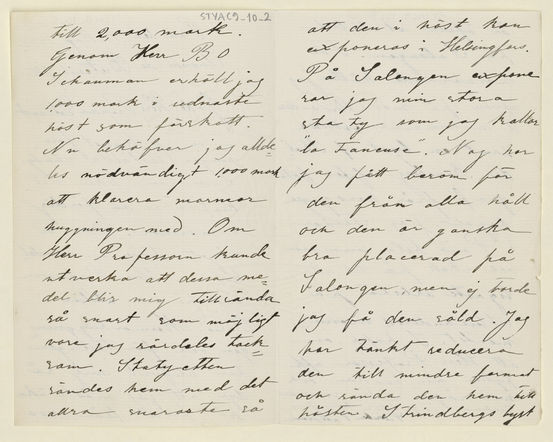 STYAC9-10-2
till 2,000 mark.
Genom Herr B O
Schauman erhöll jag
1,000 mark i sednaste
höst som förskott.
Nu behöfver jag allde=
les nödvändigt 1,000 mark
att klarera marmor
huggningen med. Om
Herr Professorn kunde
utverka att dessa me=
del blir mig tillsända
så snart som möjligt
vore jag särdeles tack=
sam. Statyetten
sändes hem med det
allra snaraste så
att den i höst kan
exponeras i Helsingfors.
På Salongen expone
rar jag min stora
staty som jag kallar
"la Faneuse". Nog har
jag fått beröm för
den från alla håll
och den är ganska
bra placerad på
Salongen men ej torde
jag få den såld. Jag
har tänkt reducera
den till mindre format
och sända den hem till
hösten. Strindbergs byst